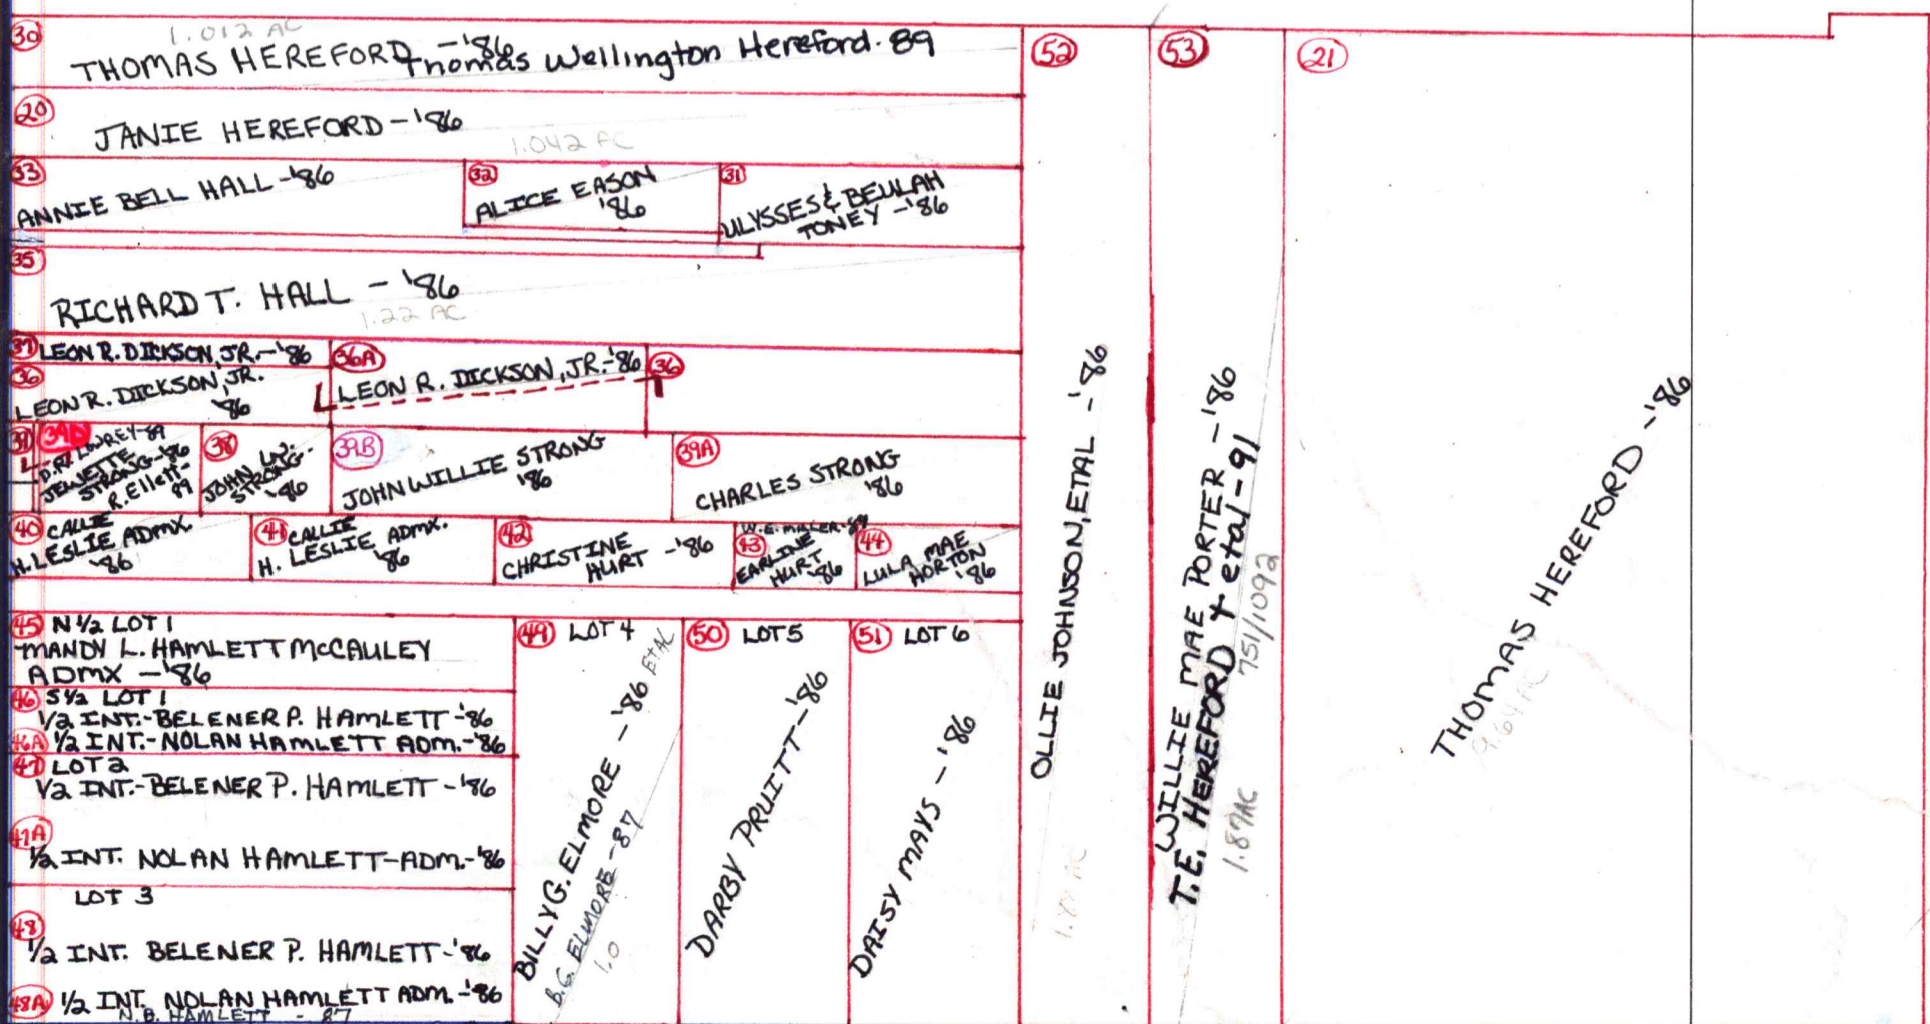 30
1.012 AC
THOMAS HEREFORD -'86
Thomas Wellington Hereford. 89
20
JANIE HEREFORD -'86
1.042 AC
33
ANNIE BELL HALL -'86
32
ALICE EASON
'86
31
ULYSSES & BEULAH
TONEY -'86
35
RICHARD T. HALL - '86
1.22 AC
37 LEON R. DICKSON, JR. -'86
36
LEON R. DICKSON, JR.
'86
36A
LEON R. DICKSON, JR. -'86
36
39D
LOWREY-89
JEWETTE
STRONG-'86
R. Ellett-
89
38
JOHN W.
STRONG-
'86
39B
JOHN WILLIE STRONG
'86
39A
CHARLES STRONG
'86
40 CALLIE
H. LESLIE ADMX.
'86
41 CALLIE
H. LESLIE ADMX.
'86
42
CHRISTINE
HURT -'86
W.E. MILLER-89
43
EARLINE
HURT
'86
44
LULA MAE
HORTON
'86
45 N 1/2 LOT 1
MANDY L. HAMLETT McCAULEY
ADMX -'86
46 S 1/2 LOT 1
1/2 INT.-BELENER P. HAMLETT -'86
46A 1/2 INT.- NOLAN HAMLETT ADM. -'86
47 LOT 2
1/2 INT.-BELENER P. HAMLETT -'86
47A
1/2 INT. NOLAN HAMLETT-ADM.-'86
LOT 3
48
1/2 INT. BELENER P. HAMLETT -'86
48A 1/2 INT. NOLAN HAMLETT ADM. -'86
N.B. HAMLETT - 87
49 LOT 4
BILLY G. ELMORE - '86 ETAL
B.G. ELMORE -87
1.0
50 LOT 5
DARBY PRUITT -'86
51 LOT 6
DAISY MAYS - '86
52
OLLIE JOHNSON, ETAL - '86
53
WILLIE MAE PORTER -'86
T.E. HEREFORD + etal-91
751/1092
1.87AC
21
THOMAS HEREFORD -'86